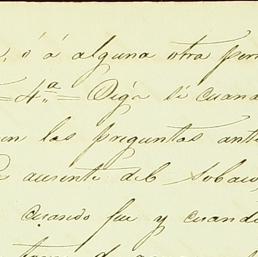 ó á alguna otra per
= 4.ª = Diga si cuand
en las preguntas ant
ausente del
Cuando fue y cuand